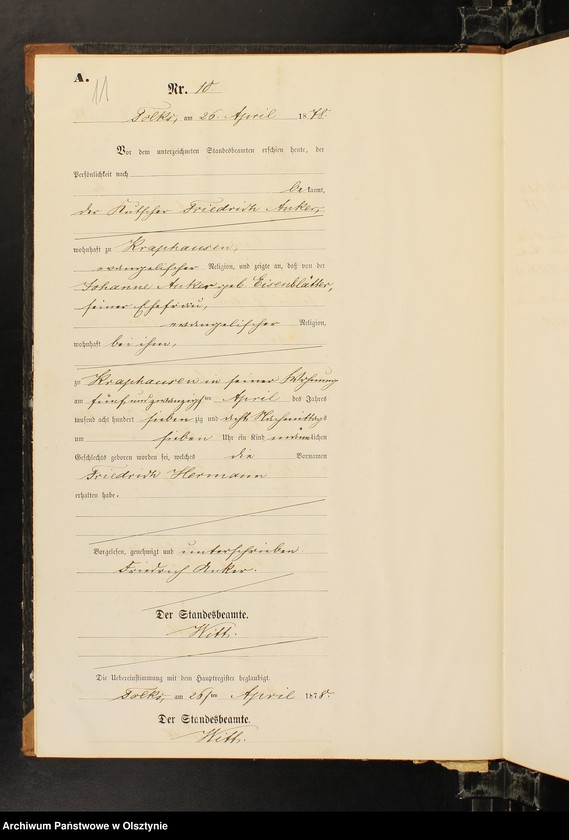 A.
11
Nr. 10.
Tolks, am 26. April 1878.
Vor dem unterzeichneten Standesbeamten erschien heute, der
Persönlichkeit nach
bekannt,
der Kutscher Friedrich Anker,
wohnhaft zu Kraphausen,
evangelischer Religion, und zeigte an, daß von der
Johanne Anker geb Eisenblätter,
seiner Ehefrau,
evangelischer Religion,
wohnhaft bei ihm,
zu Kraphausen in seiner Wohnung
am fünfundzwanzigsten April des Jahres
tausend acht hundert siebenzig und acht Nachmittags
um sieben Uhr ein Kind männlichen
Geschlechts geboren worden sei, welches die Vornamen
Friedrich Hermann
erhalten habe.
Vorgelesen, genehmigt und unterschrieben
Friedrich Anker.
Der Standesbeamte.
Witt.
Die Uebereinstimmung mit dem Hauptregister beglaubigt.
Tolks, am 26ten April 1878.
Der Standesbeamte.
Witt.
Archiwum Państwowe w Olsztynie